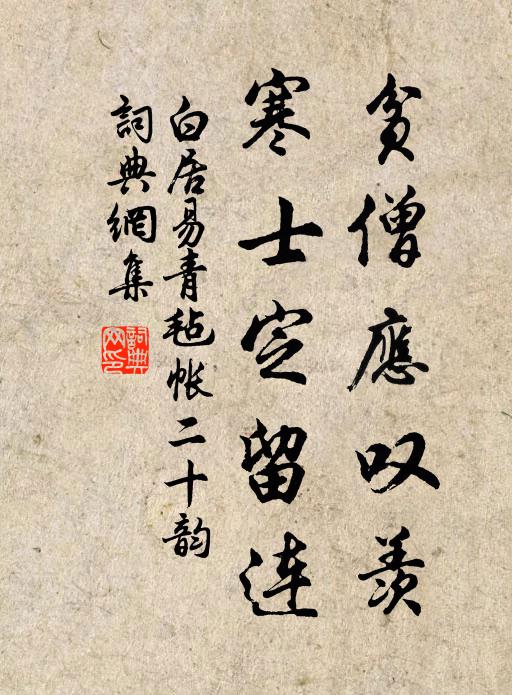 貧僧應叹羨
寒士定留連
白居易青毡帐二十韵
詞典網集
詞典网印